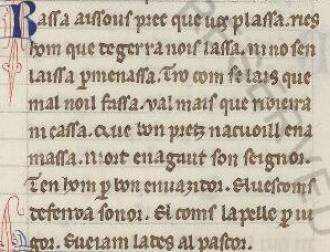 Rassa aissous prec que uos plassa. rics
hom que de gerra nois lassa. ni no sen
laissa p menassa. Tro com se lais que
mal noil fassa. ual mais que ribeira
ni cassa. Que bon pretz nacuoill e na
massa. mort en agut son seignor.
Ten hom p bon enuazidor. El uescoms
defenda sonor. El coms lapelle p ui
gor. Eueiam lades al pascor.
RESERVED